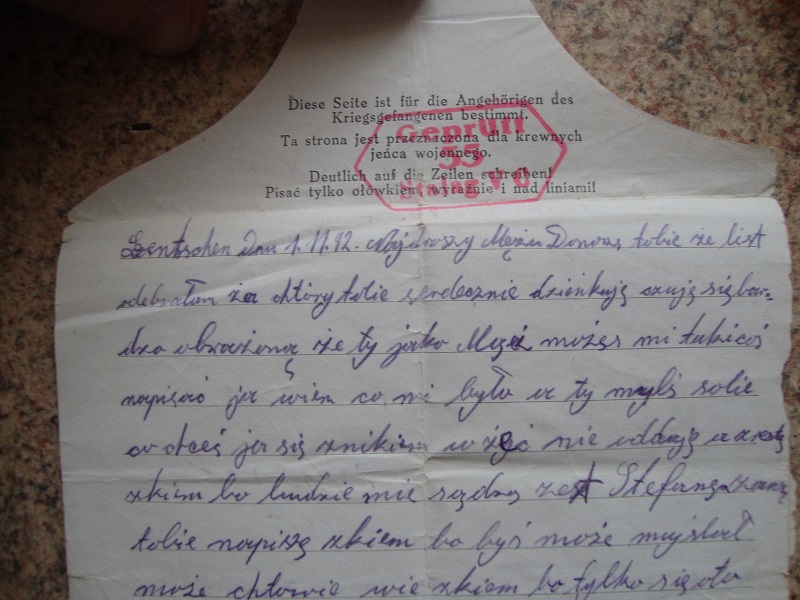 Diese Seite ist für die Angehörigen des
Kriegsgefangenen bestimmt.
Ta strona jest przeznaczona dla krewnych
jeńca wojennego.
Deutlich auf die Zeilen schreiben!
Pisać tylko ołówkiem, wyraźnie i nad liniami!
Geprüft
53
Stalag V
Dnia 1.11.42. Mężu Donoszę tobie że list
odebrałam za który tobie serdecznie dzienkują czują się bar-
dzo obrażoną że ty jako Męż możęs mi takicoś
napisać ja wiem co mi było a ty myślś sobie
co chceś ja się znikiem w żęć nie uddają
zkiem bo ludzie mie sądzą Stefanę
tobie napiszę zkiem bo byś może myślał
może chłowie wie zkiem bo tylko się